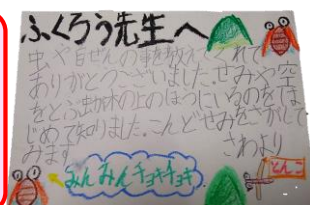 ふくろう先生へ
虫や自ぜんの事を教えてくれて
ありがとうございました。せみや空
をとぶ虫が木の上のほうにいるのをは
じめて知りました。こんどせみをさがして
みます
さわより
みんみんチョキチョキ
とんこ